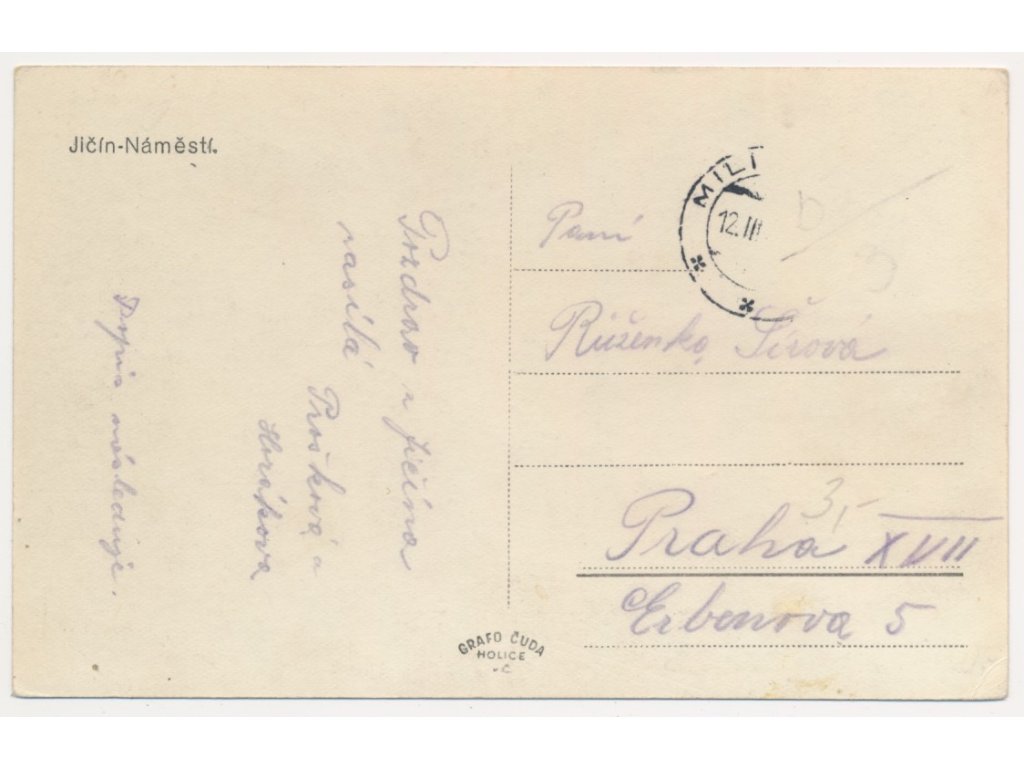 Jičín-Náměstí.
Pozdrav z Jičína
zasílá
Prošková a
Horákova
Dopis následuje.
MILI
12.III
Paní
Růženka Šírová
3,-
Praha XVII
Erbenova 5
GRAFO ČUDA
HOLICE